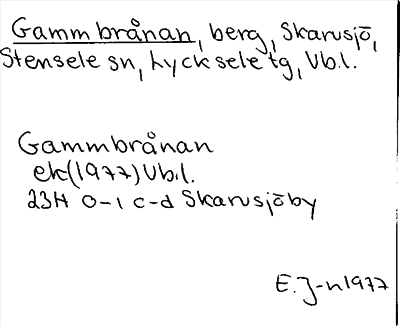 Gammbrånan, berg, Skarusjö,
Stensele sn, Lycksele tg, Vb.l.
Gammbrånan
ek(1977)Vb.l.
23H 0-1 c-d Skarvsjöby
E.J-n1977